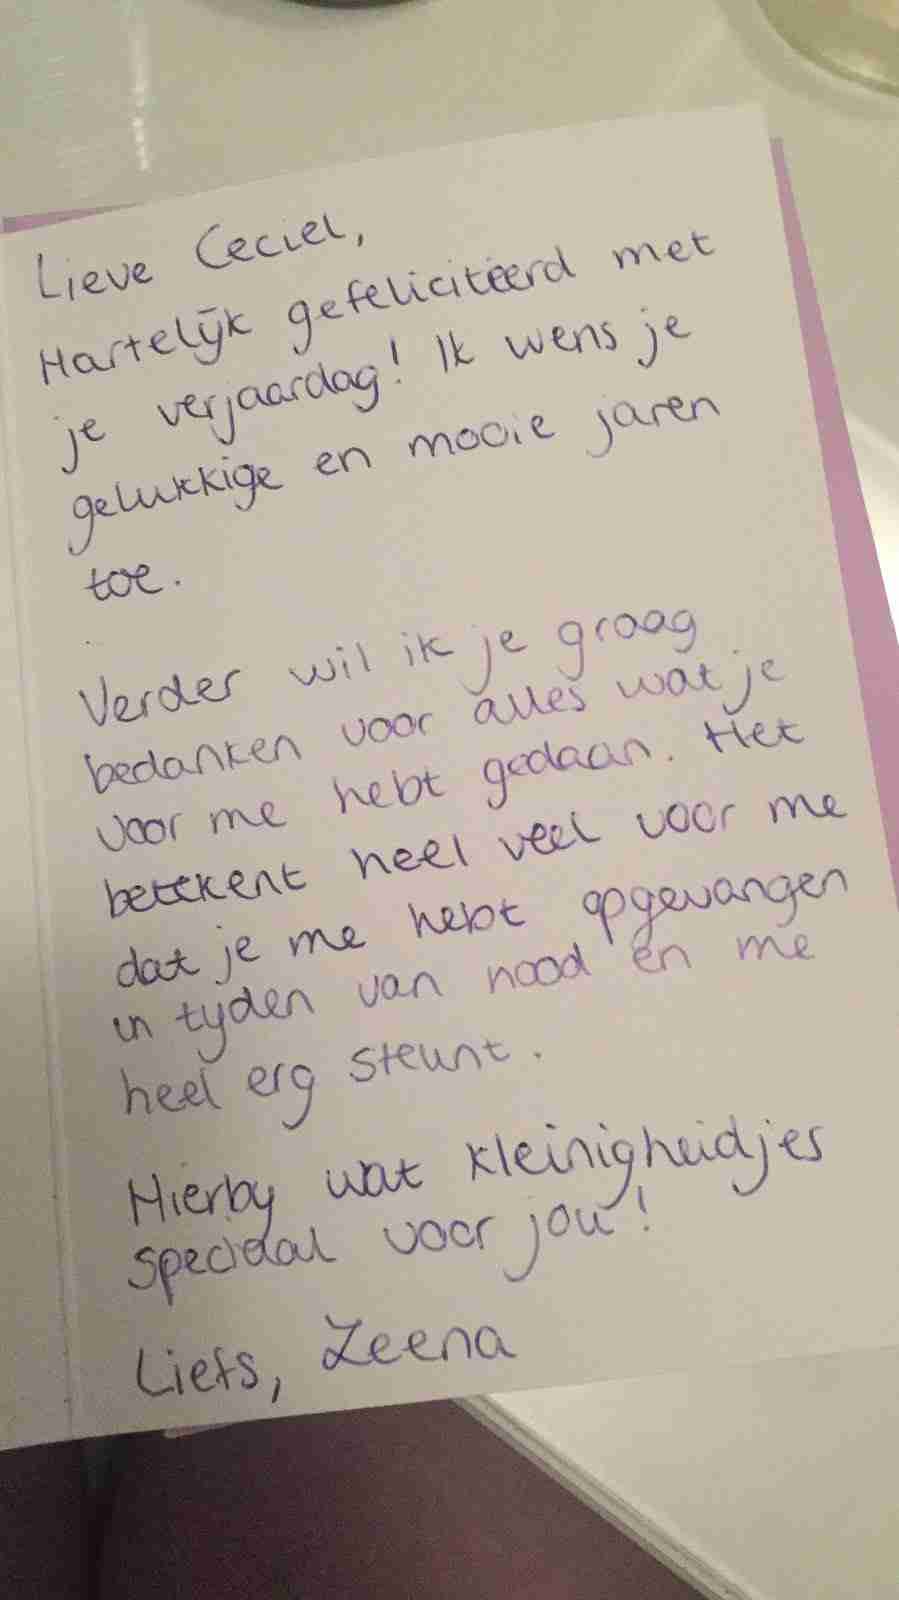 Lieve Ceciel,
Hartelijk gefeliciteerd met
je verjaardag! Ik wens je
gelukkige en mooie jaren
toe.
Verder wil ik je graag
bedanken voor alles wat je
voor me hebt gedaan. Het
betekent heel veel voor me
dat je me hebt opgevangen
in tijden van nood en me
heel erg steunt.
Hierbij wat kleinigheidjes
speciaal voor jou!
Liefs, Zeena